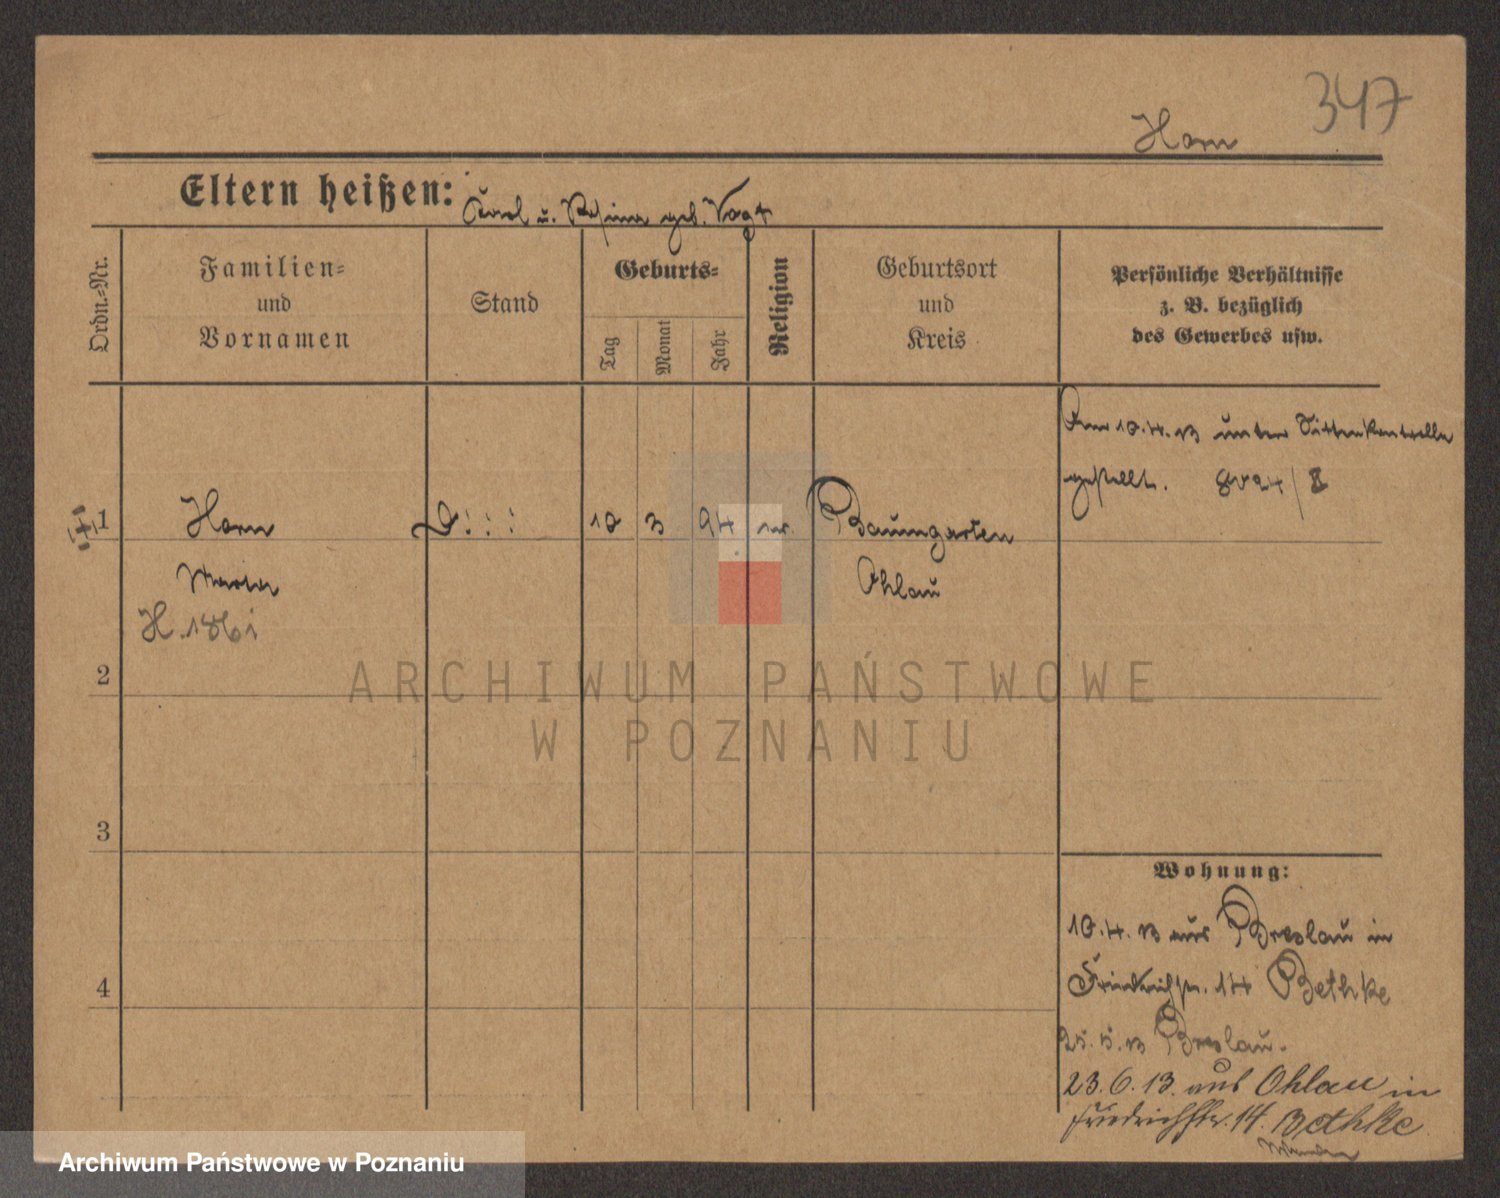 347
Horn
Eltern heißen: Karl u. Rosina geb. Vogt
Ordn.-Nr.
Familien-
und
Vornamen
Stand
Geburts-
Tag
Monat
Jahr
Religion
Geburtsort
und
Kreis
Persönliche Verhältnisse
z. B. bezüglich
des Gewerbes usw.
Am 10.4.13 unter Sittenkontrolle
gestellt. 8024/I
1
Horn
D:::
10 3 94 ev.
Baumgarten
Maria
Ohlau
H. 1861
2
3
4
Wohnung:
10.4.13 aus Breslau in
Friedrichstr. 14 Bethke
25.5.13 Breslau.
23.6.13. aus Ohlau in
Friedrichstr. 14. Bethke
ARCHIWUM PAŃSTWOWE
W POZNANIU
Archiwum Państwowe w Poznaniu